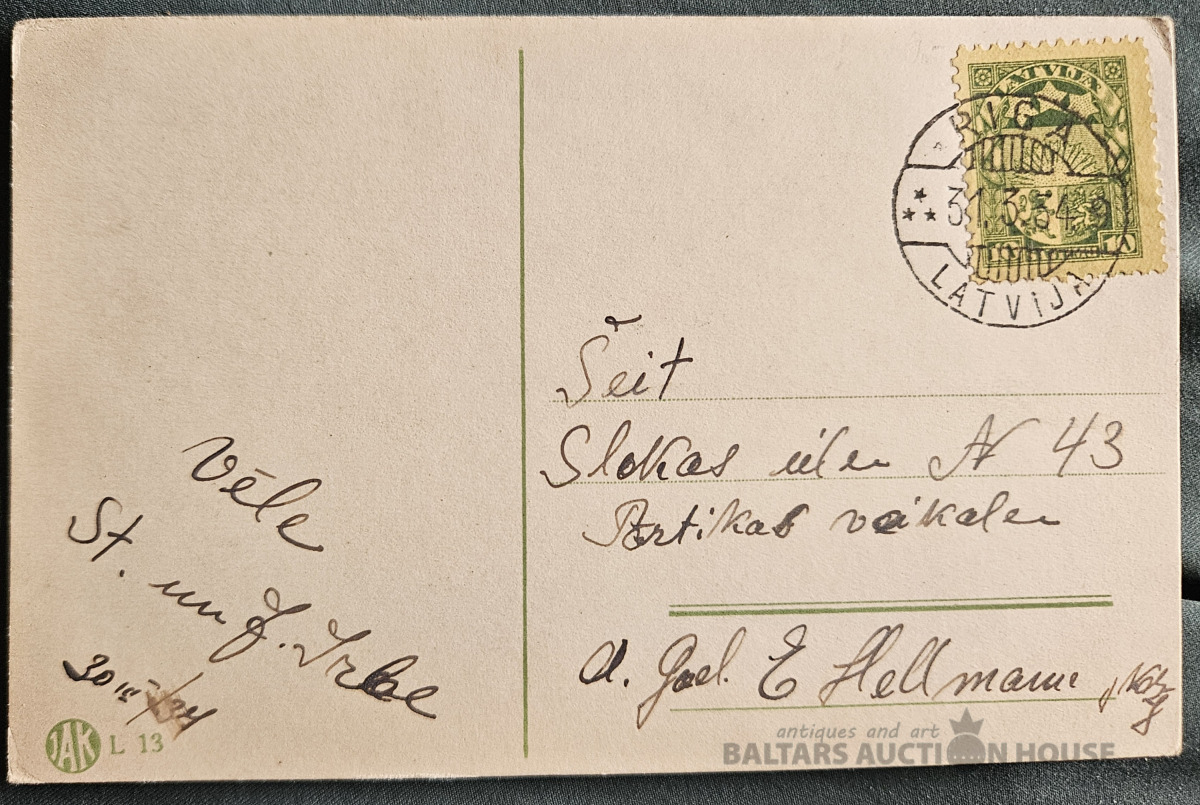 LATVIJA
RIGA
31.3.34.9
LATVIJA
Šeit
Slokas ielā N 43
Pārtikas veikalā
A. God. E Hellmann
Vēle
St. un J. Irbe
30 III 34
JAK L 13
antiques and art
BALTARS AUCTION HOUSE